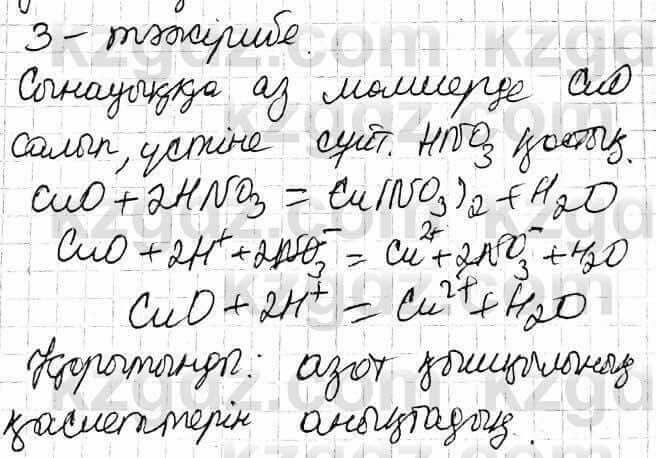 3 - тәжірибе.
Сынауыққа аз мөлшерде CuO
салып, үстіне сұйт. HNO₃ қостық.
CuO + 2HNO₃ = Cu(NO₃)₂ + H₂O
CuO + 2H⁺ + 2NO₃⁻ = Cu²⁺ + 2NO₃⁻ + H₂O
CuO + 2H⁺ = Cu²⁺ + H₂O
Қорытынды: азот қышқылының
қасиеттерін анықтадық.